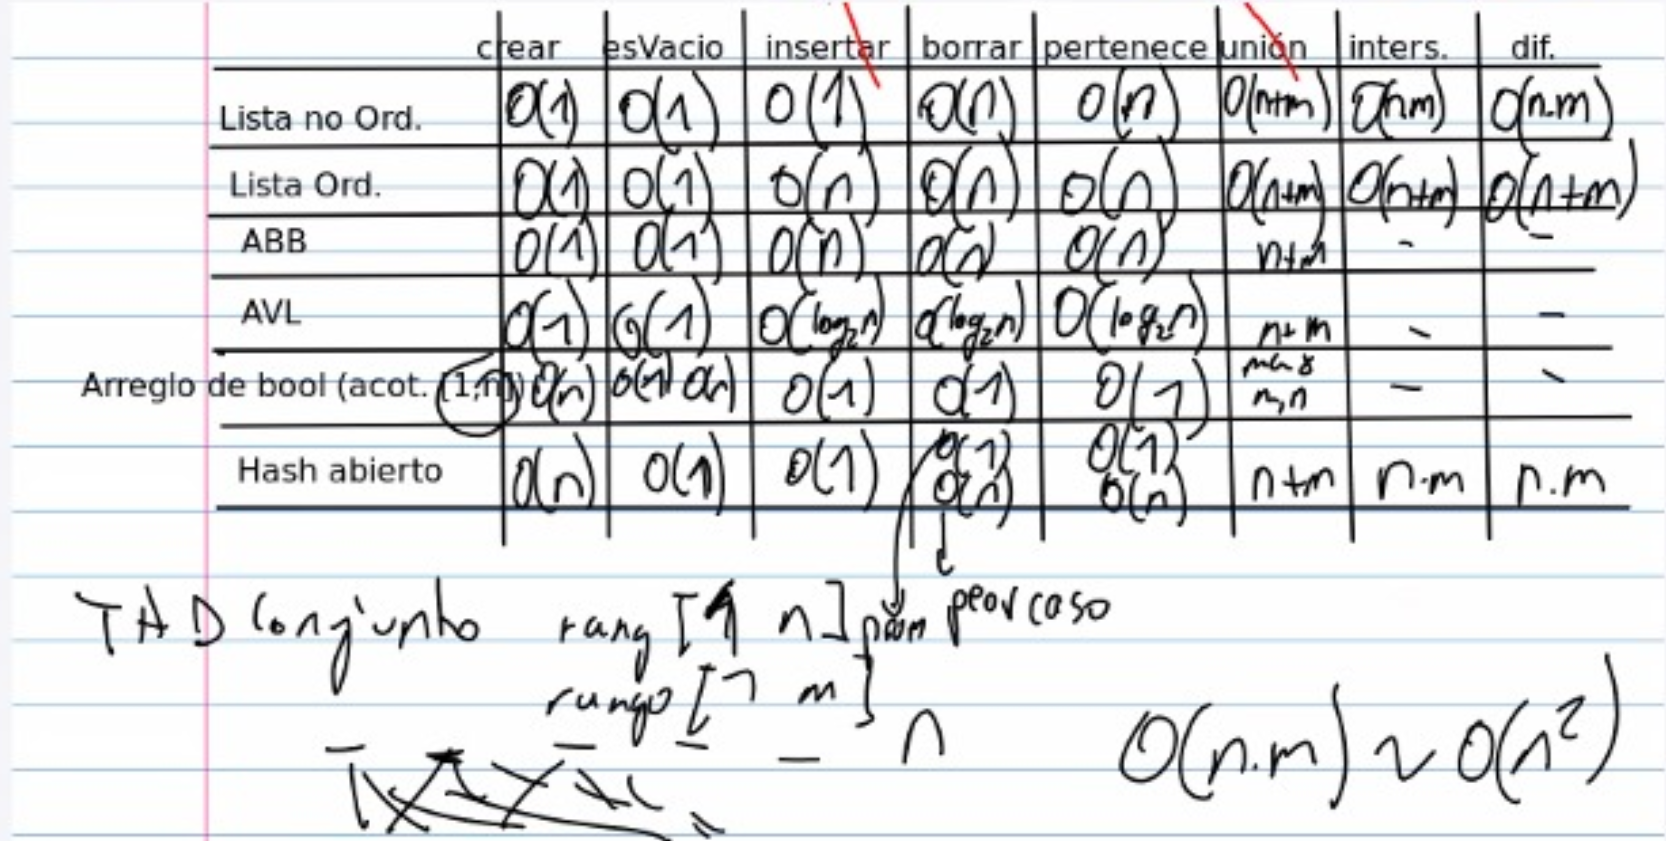 crear esVacio insertar borrar pertenece unión inters. dif.
Lista no Ord. O(1) O(1) O(1) O(n) O(n) O(n+m) O(n.m) O(n.m)
Lista Ord. O(1) O(1) O(n) O(n) O(n) O(n+m) O(n+m) O(n+m)
ABB O(1) O(1) O(n) O(n) O(n) n+m - -
AVL O(1) O(1) O(log₂n) O(log₂n) O(log₂n) n+m - -
Arreglo de bool (acot. [1,n]) O(n) O(1) O(n) O(1) O(1) O(1) m,n - -
Hash abierto O(n) O(1) O(1) O(1) O(n) O(1) O(n) n+m n.m n.m
peor caso
TAD Conjunto rang [1 n]
rango [1 m]
n O(n.m) ~ O(n²)